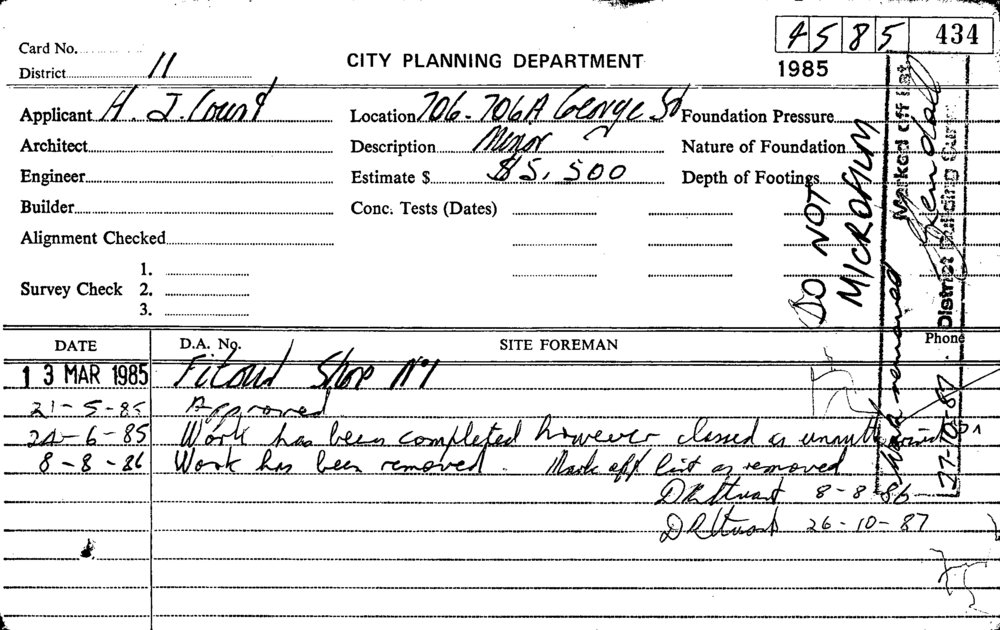 4 5 8 5 434
Card No.
1985
District 11
CITY PLANNING DEPARTMENT
Applicant H. J. Court Location 706-706A George St Foundation Pressure
Architect Description Minor Nature of Foundation
Engineer Estimate $ $5,500 Depth of Footings
Builder Conc. Tests (Dates)
Alignment Checked
1.
Survey Check 2.
3.
DO NOT
MICROFILM
Marked off list
Kendall
District Building Surv
27-10-87
Work removed
DATE D.A. No. SITE FOREMAN Phone
13 MAR 1985 Fitout Shop No 1
21-5-85 Approved
24-6-85 Work has been completed however classed as unauthorised
8-8-86 Work has been removed. Mark off list as removed
DR Stuart 8-8-86
DR Stuart 26-10-87